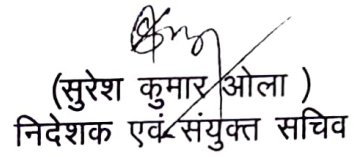 (सुरेश कुमार ओला )
निदेशक एवं संयुक्त सचिव